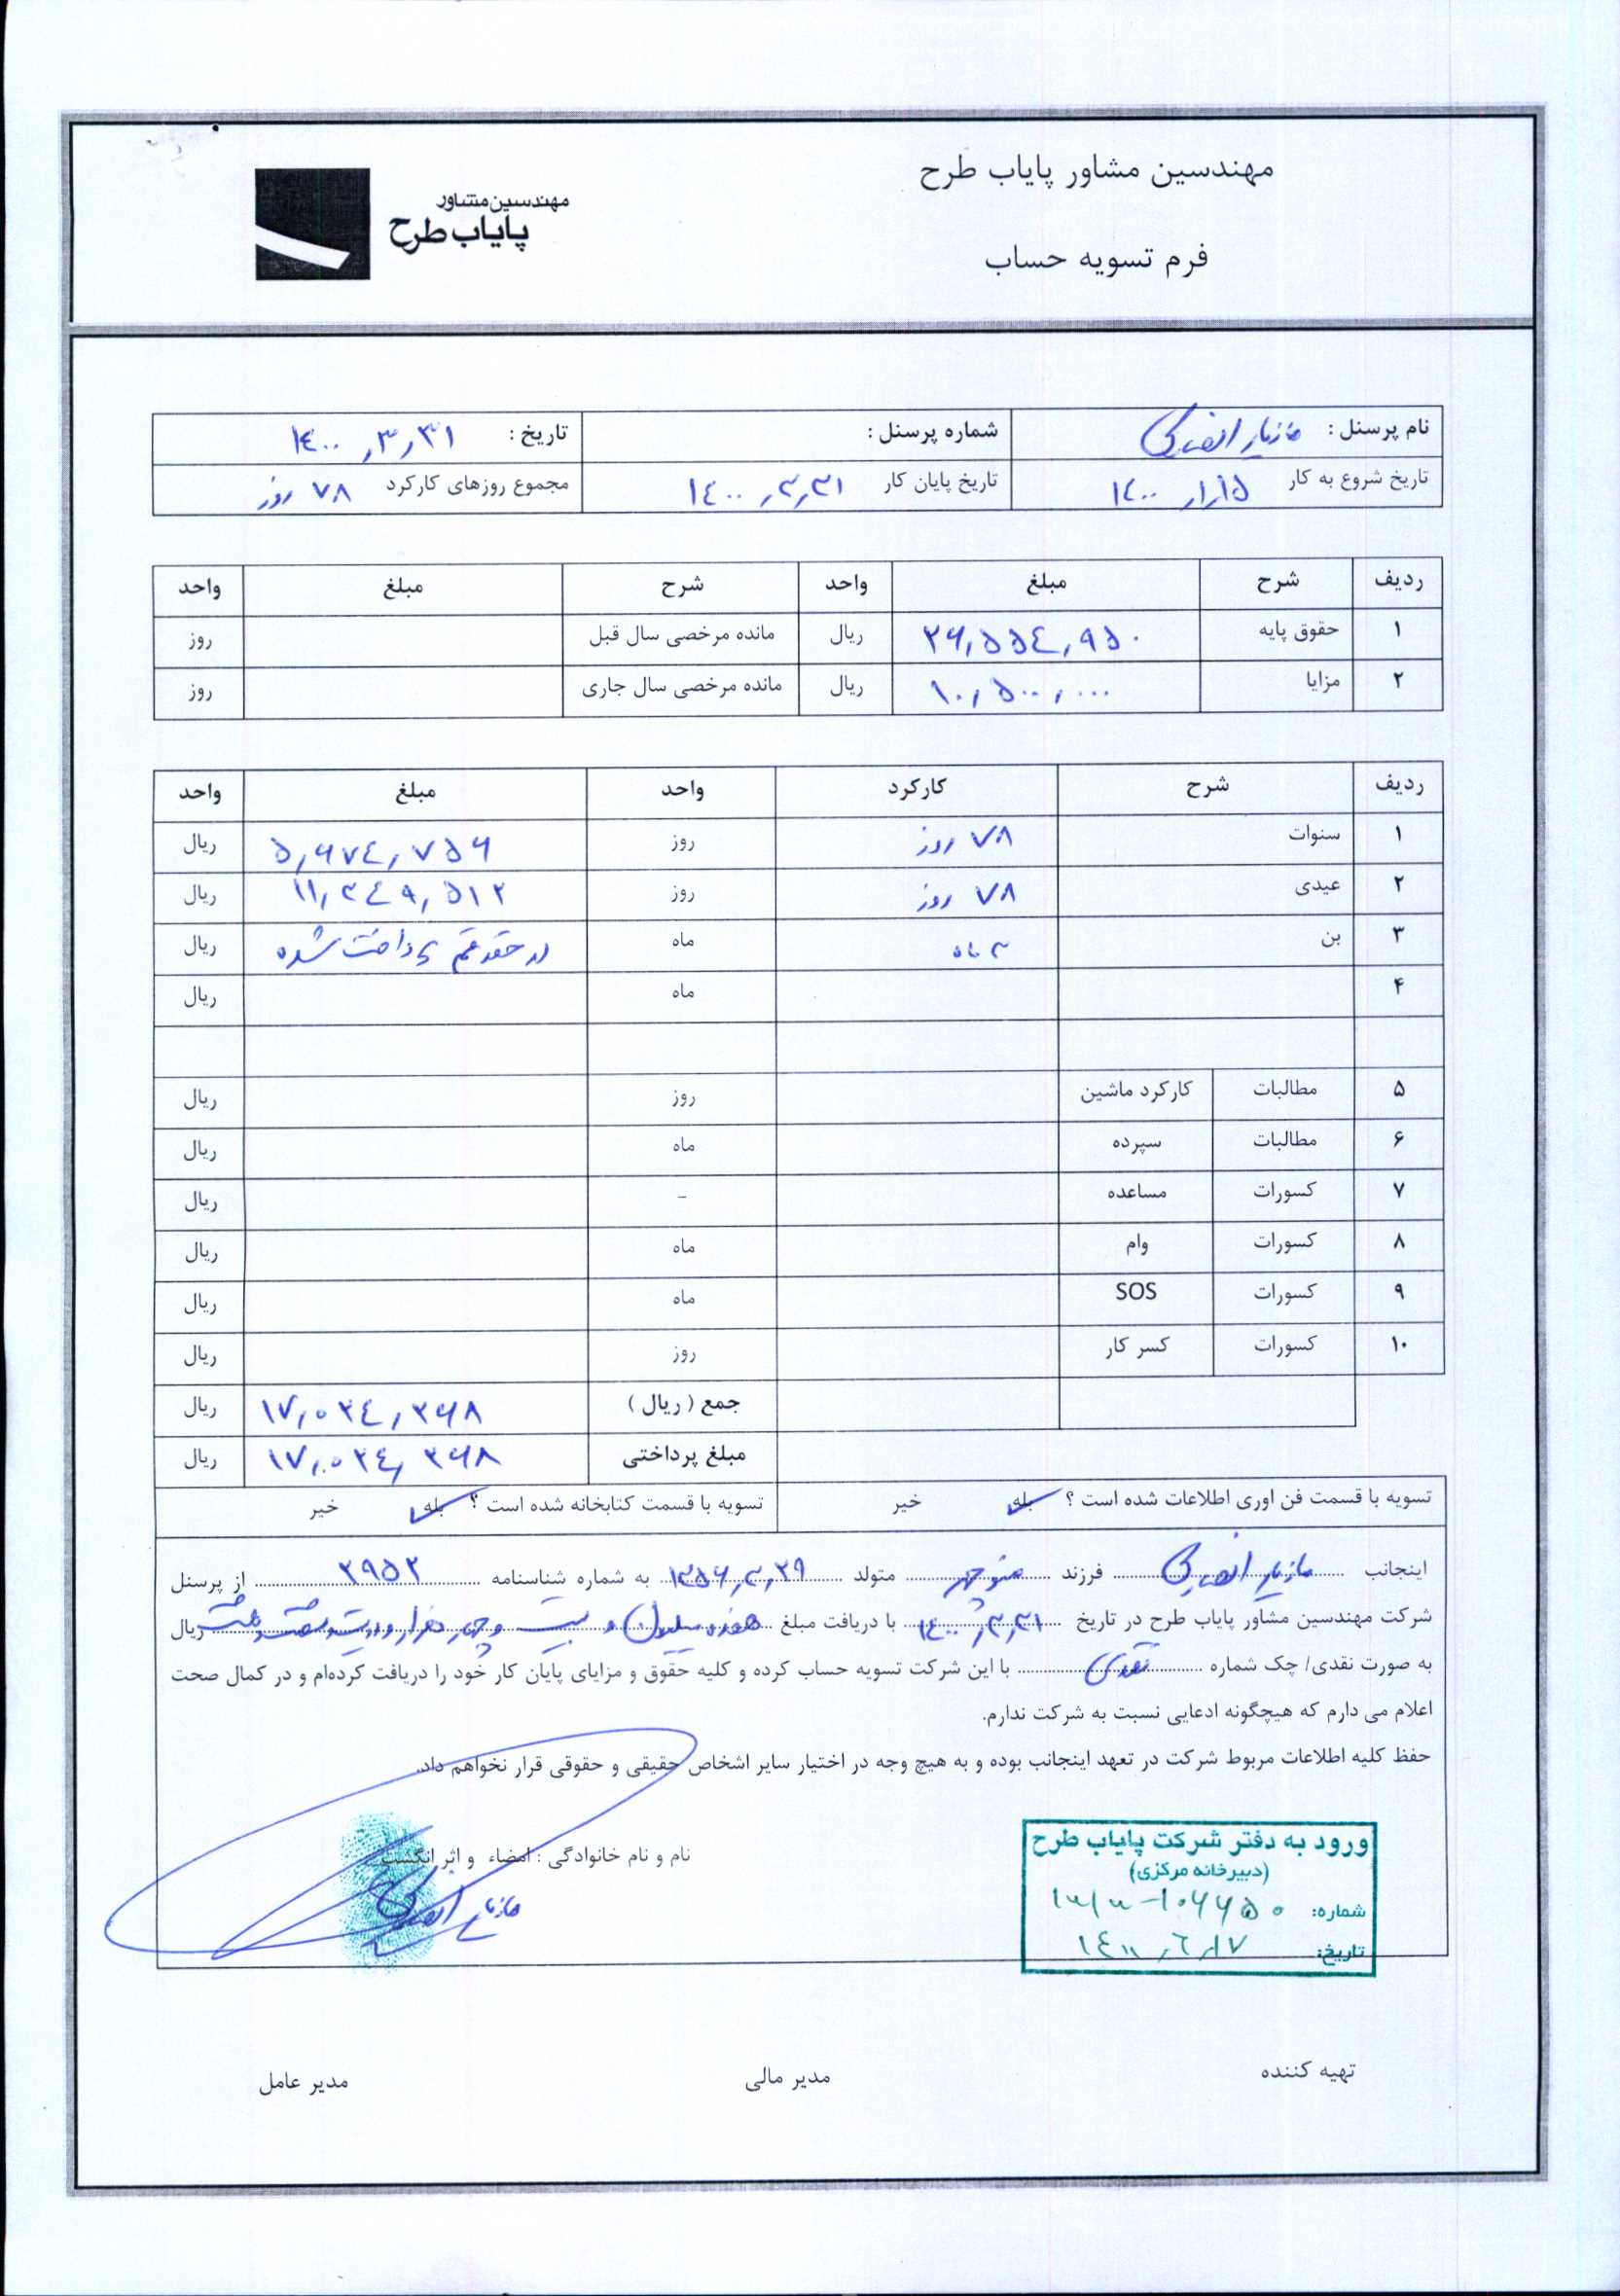 مهندسین مشاور پایاب طرح
مهندسین مشاور
پایاب طرح
فرم تسویه حساب
نام پرسنل : مازیار انصاری
شماره پرسنل :
تاریخ : ۱۴۰۰,۳,۳۱
تاریخ شروع به کار ۱۴۰۰,۱,۱۵
تاریخ پایان کار ۱۴۰۰,۳,۳۱
مجموع روزهای کارکرد ۷۸ روز
ردیف شرح مبلغ واحد شرح مبلغ واحد
۱ حقوق پایه ۲۶,۵۵۴,۹۵۰ ریال مانده مرخصی سال قبل روز
۲ مزایا ۱۰,۵۰۰,۰۰۰ ریال مانده مرخصی سال جاری روز
ردیف شرح کارکرد واحد مبلغ واحد
۱ سنوات ۷۸ روز روز ۵,۶۷۴,۷۵۶ ریال
۲ عیدی ۷۸ روز روز ۱۱,۳۴۹,۵۱۲ ریال
۳ بن ۳ ماه ماه در حقوقم پرداخت شده ریال
۴ ماه ریال
۵ مطالبات کارکرد ماشین روز ریال
۶ مطالبات سپرده ماه ریال
۷ کسورات مساعده - ریال
۸ کسورات وام ماه ریال
۹ کسورات SOS ماه ریال
۱۰ کسورات کسر کار روز ریال
جمع ( ریال ) ۱۷,۰۲۴,۲۶۸ ریال
مبلغ پرداختی ۱۷,۰۲۴,۲۶۸ ریال
تسویه با قسمت فن اوری اطلاعات شده است ؟ بله خیر تسویه با قسمت کتابخانه شده است ؟ بله خیر
اینجانب مازیار انصاری فرزند منوچهر متولد ۱۳۵۶,۳,۲۹ به شماره شناسنامه ۲۹۵۲ از پرسنل
شرکت مهندسین مشاور پایاب طرح در تاریخ ۱۴۰۰,۳,۳۱ با دریافت مبلغ هفده میلیون و بیست و چهار هزار و دویست و شصت و هشت ریال
به صورت نقدی/ چک شماره نقدی با این شرکت تسویه حساب کرده و کلیه حقوق و مزایای پایان کار خود را دریافت کرده‌ام و در کمال صحت
اعلام می دارم که هیچگونه ادعایی نسبت به شرکت ندارم.
حفظ کلیه اطلاعات مربوط شرکت در تعهد اینجانب بوده و به هیچ وجه در اختیار سایر اشخاص حقیقی و حقوقی قرار نخواهم داد.
نام و نام خانوادگی : امضاء و اثر انگشت
مازیار انصاری
ورود به دفتر شرکت پایاب طرح
(دبیرخانه مرکزی)
شماره:
تاریخ:
تهیه کننده مدیر مالی مدیر عامل